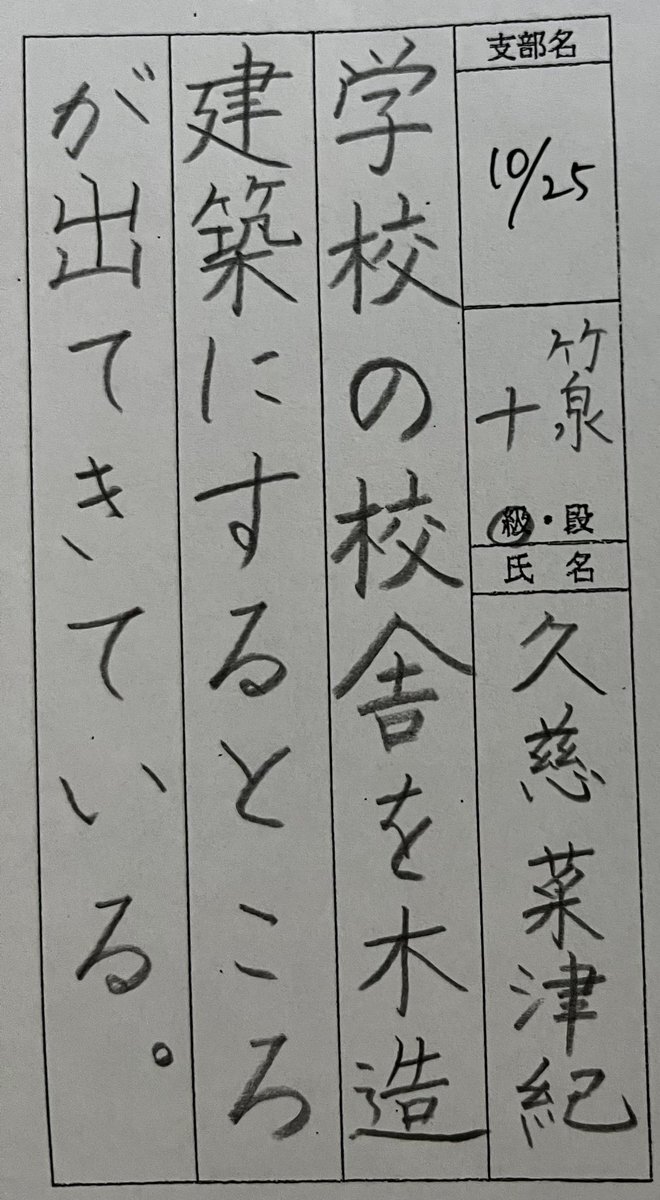 支部名
10/25
竹泉
十
級・段
氏名
久慈菜津紀
学校の校舎を木造
建築にするところ
が出てきている。